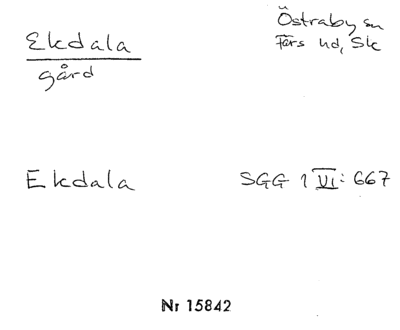 Ekdala
gård
Östraby sn
Färs hd, Sk
Ekdala
SGG 1 VI: 667
Nr 15842